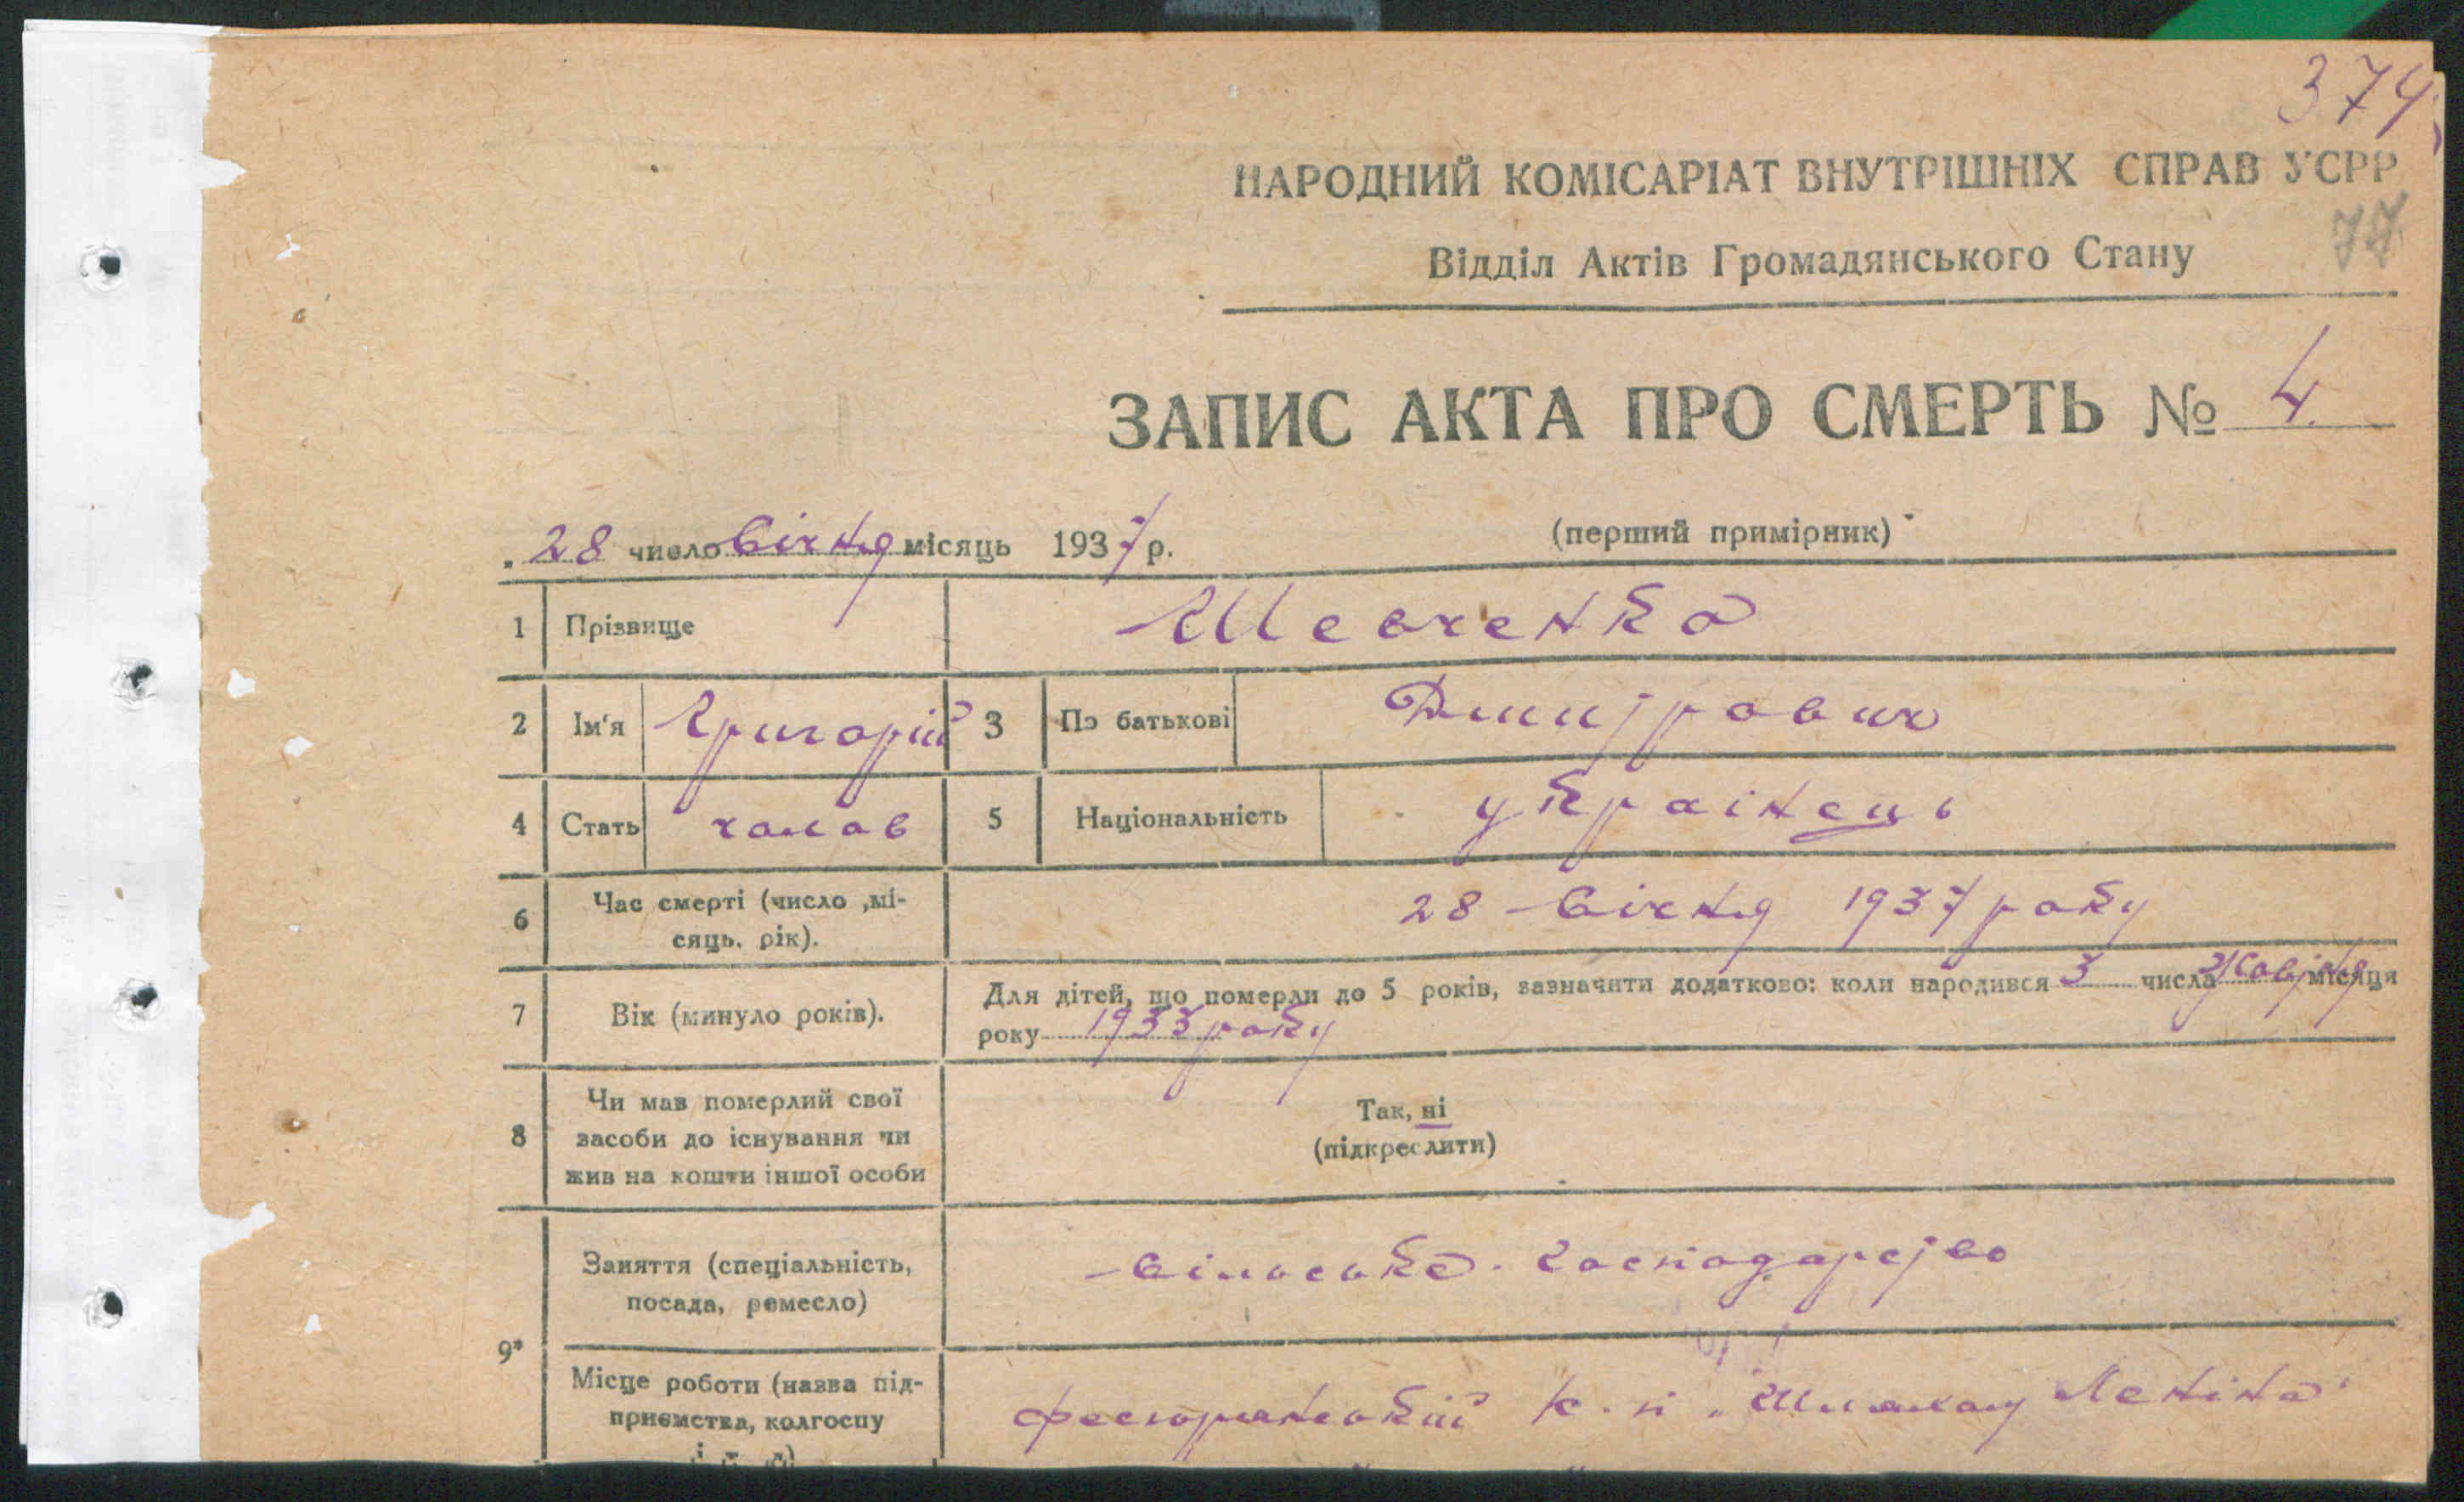 374
НАРОДНИЙ КОМІСАРІАТ ВНУТРІШНІХ СПРАВ УСРР
77
Відділ Актів Громадянського Стану
ЗАПИС АКТА ПРО СМЕРТЬ № 4.
(перший примірник)
28 число Січня місяць 1937 р.
1 Прізвище Шевченко
2 Ім'я Григорій 3 По батькові Дмитрович
4 Стать чолов 5 Національність українець
6 Час смерті (число ,мі-
сяць, рік). 28 Січня 1937 року
7 Вік (минуло років). Для дітей, що померли до 5 років, зазначити додатково: коли народився 3 числа Жовтня місяця
року 1933 року
8 Чи мав померлий свої
засоби до існування чи
жив на кошти іншої особи
Так, ні
(підкреслити)
9* Заняття (спеціальність,
посада, ремесло) Сільське господарство
Місце роботи (назва під-
приємства, колгоспу
і т. д) к. п „Шляхом Леніна"